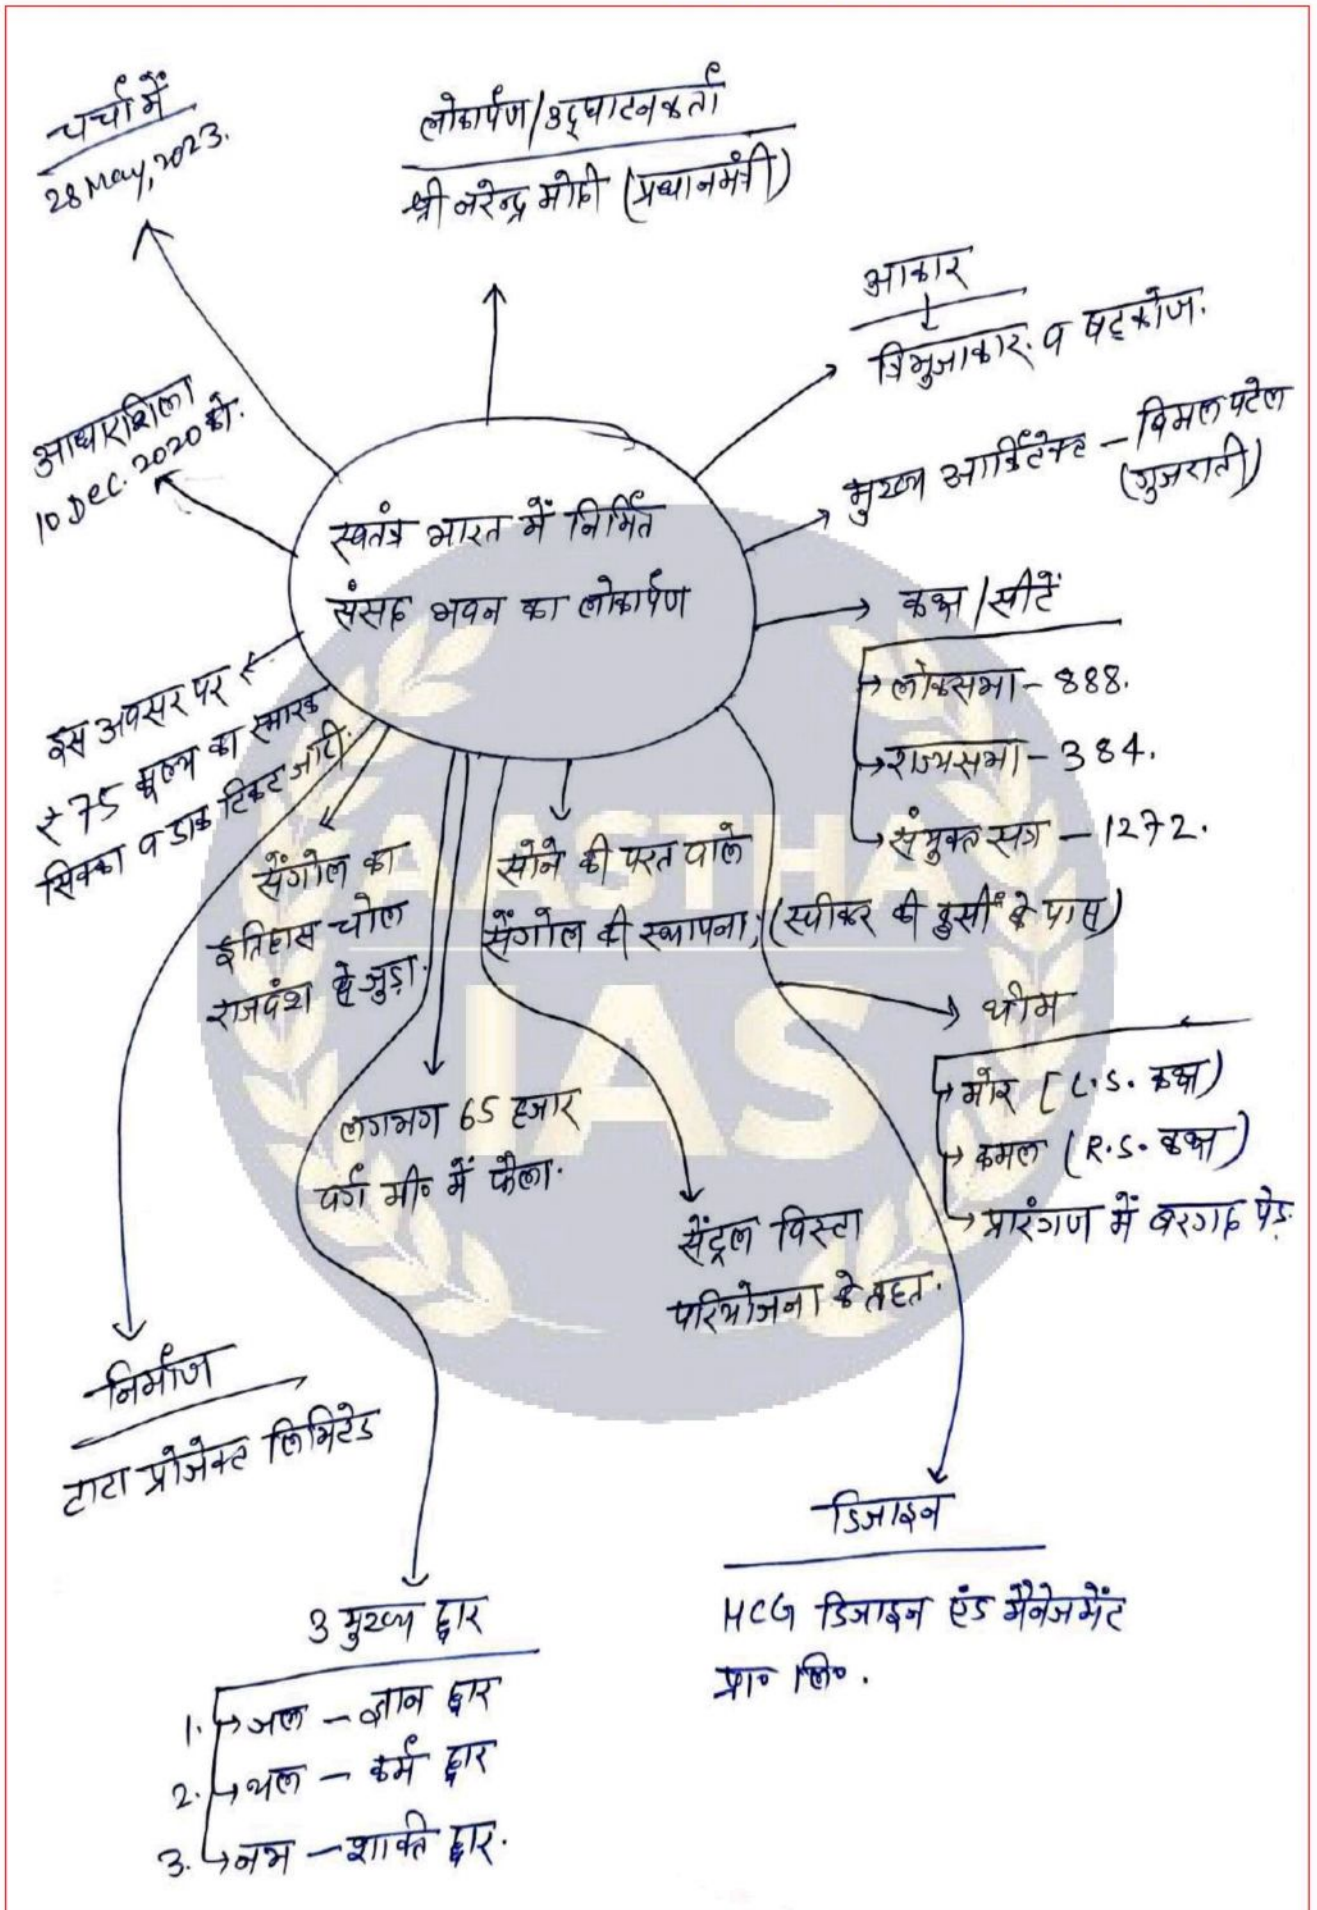 चर्चा में
28 May, 2023.
लोकार्पण/उद्घाटनकर्ता
श्री नरेन्द्र मोदी (प्रधानमंत्री)
आकार
त्रिभुजाकार. व षट्कोण.
मुख्य आर्किटेक्ट – विमल पटेल
(गुजराती)
आधारशिला
10 Dec. 2020 को.
स्वतंत्र भारत में निर्मित
संसद भवन का लोकार्पण
कक्ष/सीटें
लोकसभा – 888.
राज्यसभा – 384.
संयुक्त सत्र – 1272.
इस अवसर पर
₹75 मूल्य का स्मारक
सिक्का व डाक टिकट जारी.
सेंगोल का
इतिहास चोल
राजवंश से जुड़ा.
सोने की परत वाले
सेंगोल की स्थापना; (स्पीकर की कुर्सी के पास)
AASTHA
IAS
थीम
मोर (L.S. कक्ष)
कमल (R.S. कक्ष)
प्रारंगण में बरगद पेड़.
लगभग 65 हजार
वर्ग मी० में फैला.
सेंट्रल विस्टा
परियोजना के तहत.
निर्माण
टाटा प्रोजेक्ट लिमिटेड
डिजाइन
HCG डिजाइन एंड मैनेजमेंट
प्रा० लि०.
3 मुख्य द्वार
1. जल – ज्ञान द्वार
2. थल – कर्म द्वार
3. नभ – शक्ति द्वार.